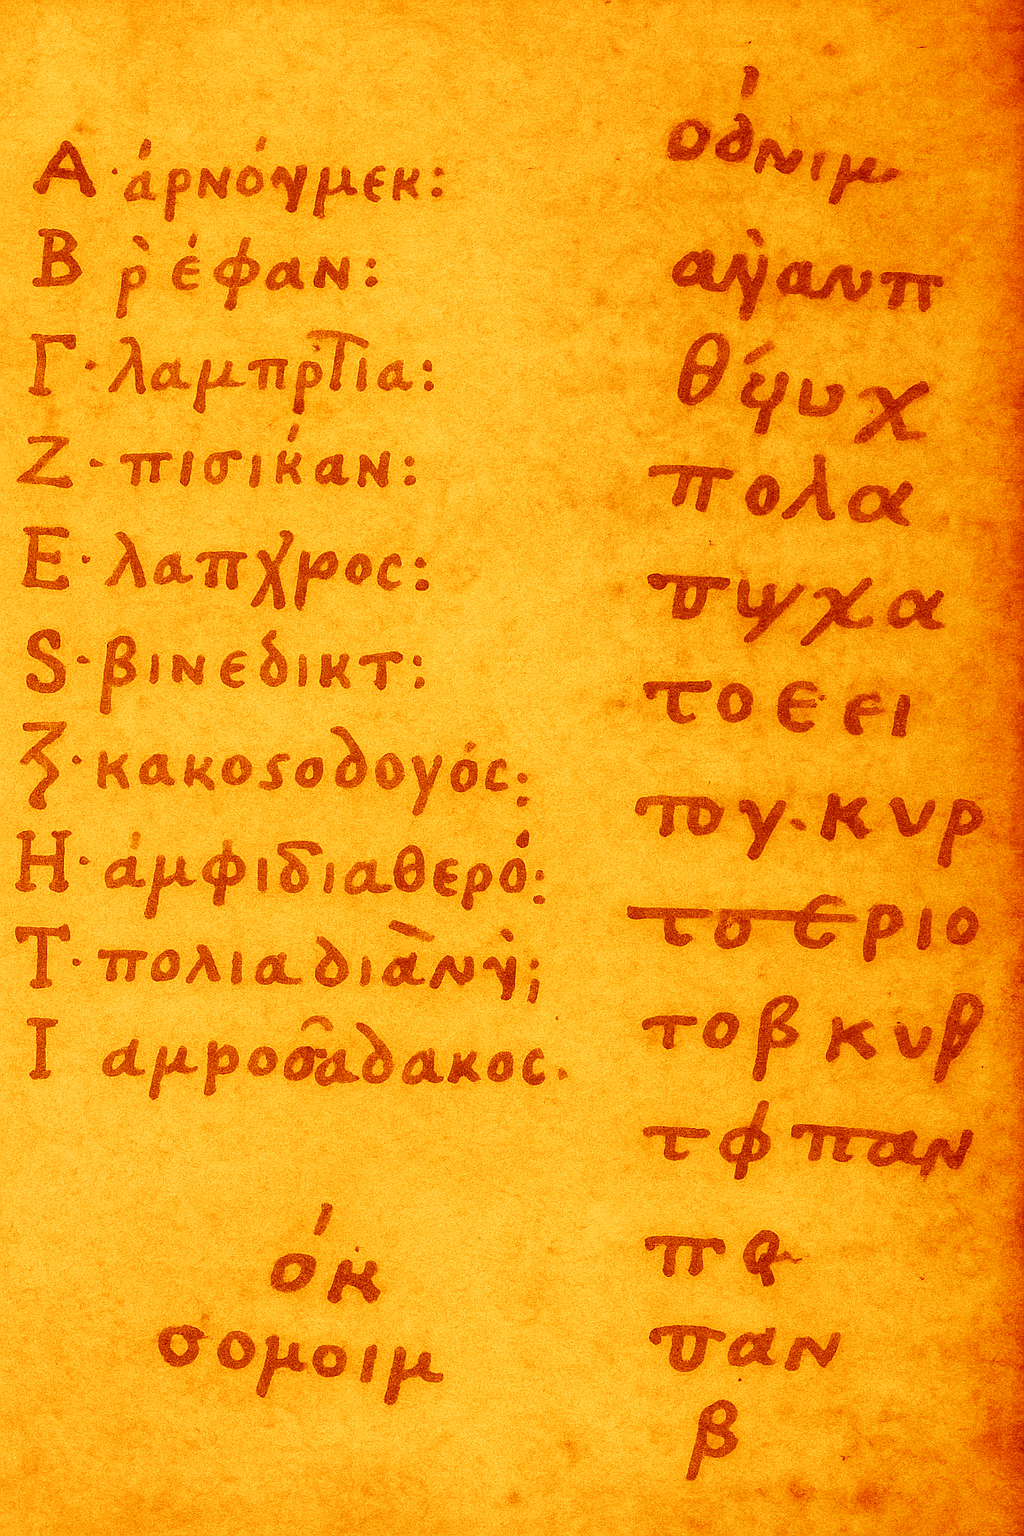 Α· άρνόγμεκ:
Β ρ̀ έφαν:
Γ· λαμπρΤια:
Ζ· πισικ́αν:
Ε· λαπχρος:
S· βινεδικτ:
Ѯ· κακοςοδογός:
Η· άμφιδιαθερό:
Τ· πολιαδιὰνγ̀;
Ι αμροσαδακος.
όκ
σομοιμ
όδνιμ
αγ̀ανπ
θ ψ́υχ
πολα
πψχα
τοεει
τογ·κυρ
τοεριο
τοβκυβ
τφπαν
παν
β